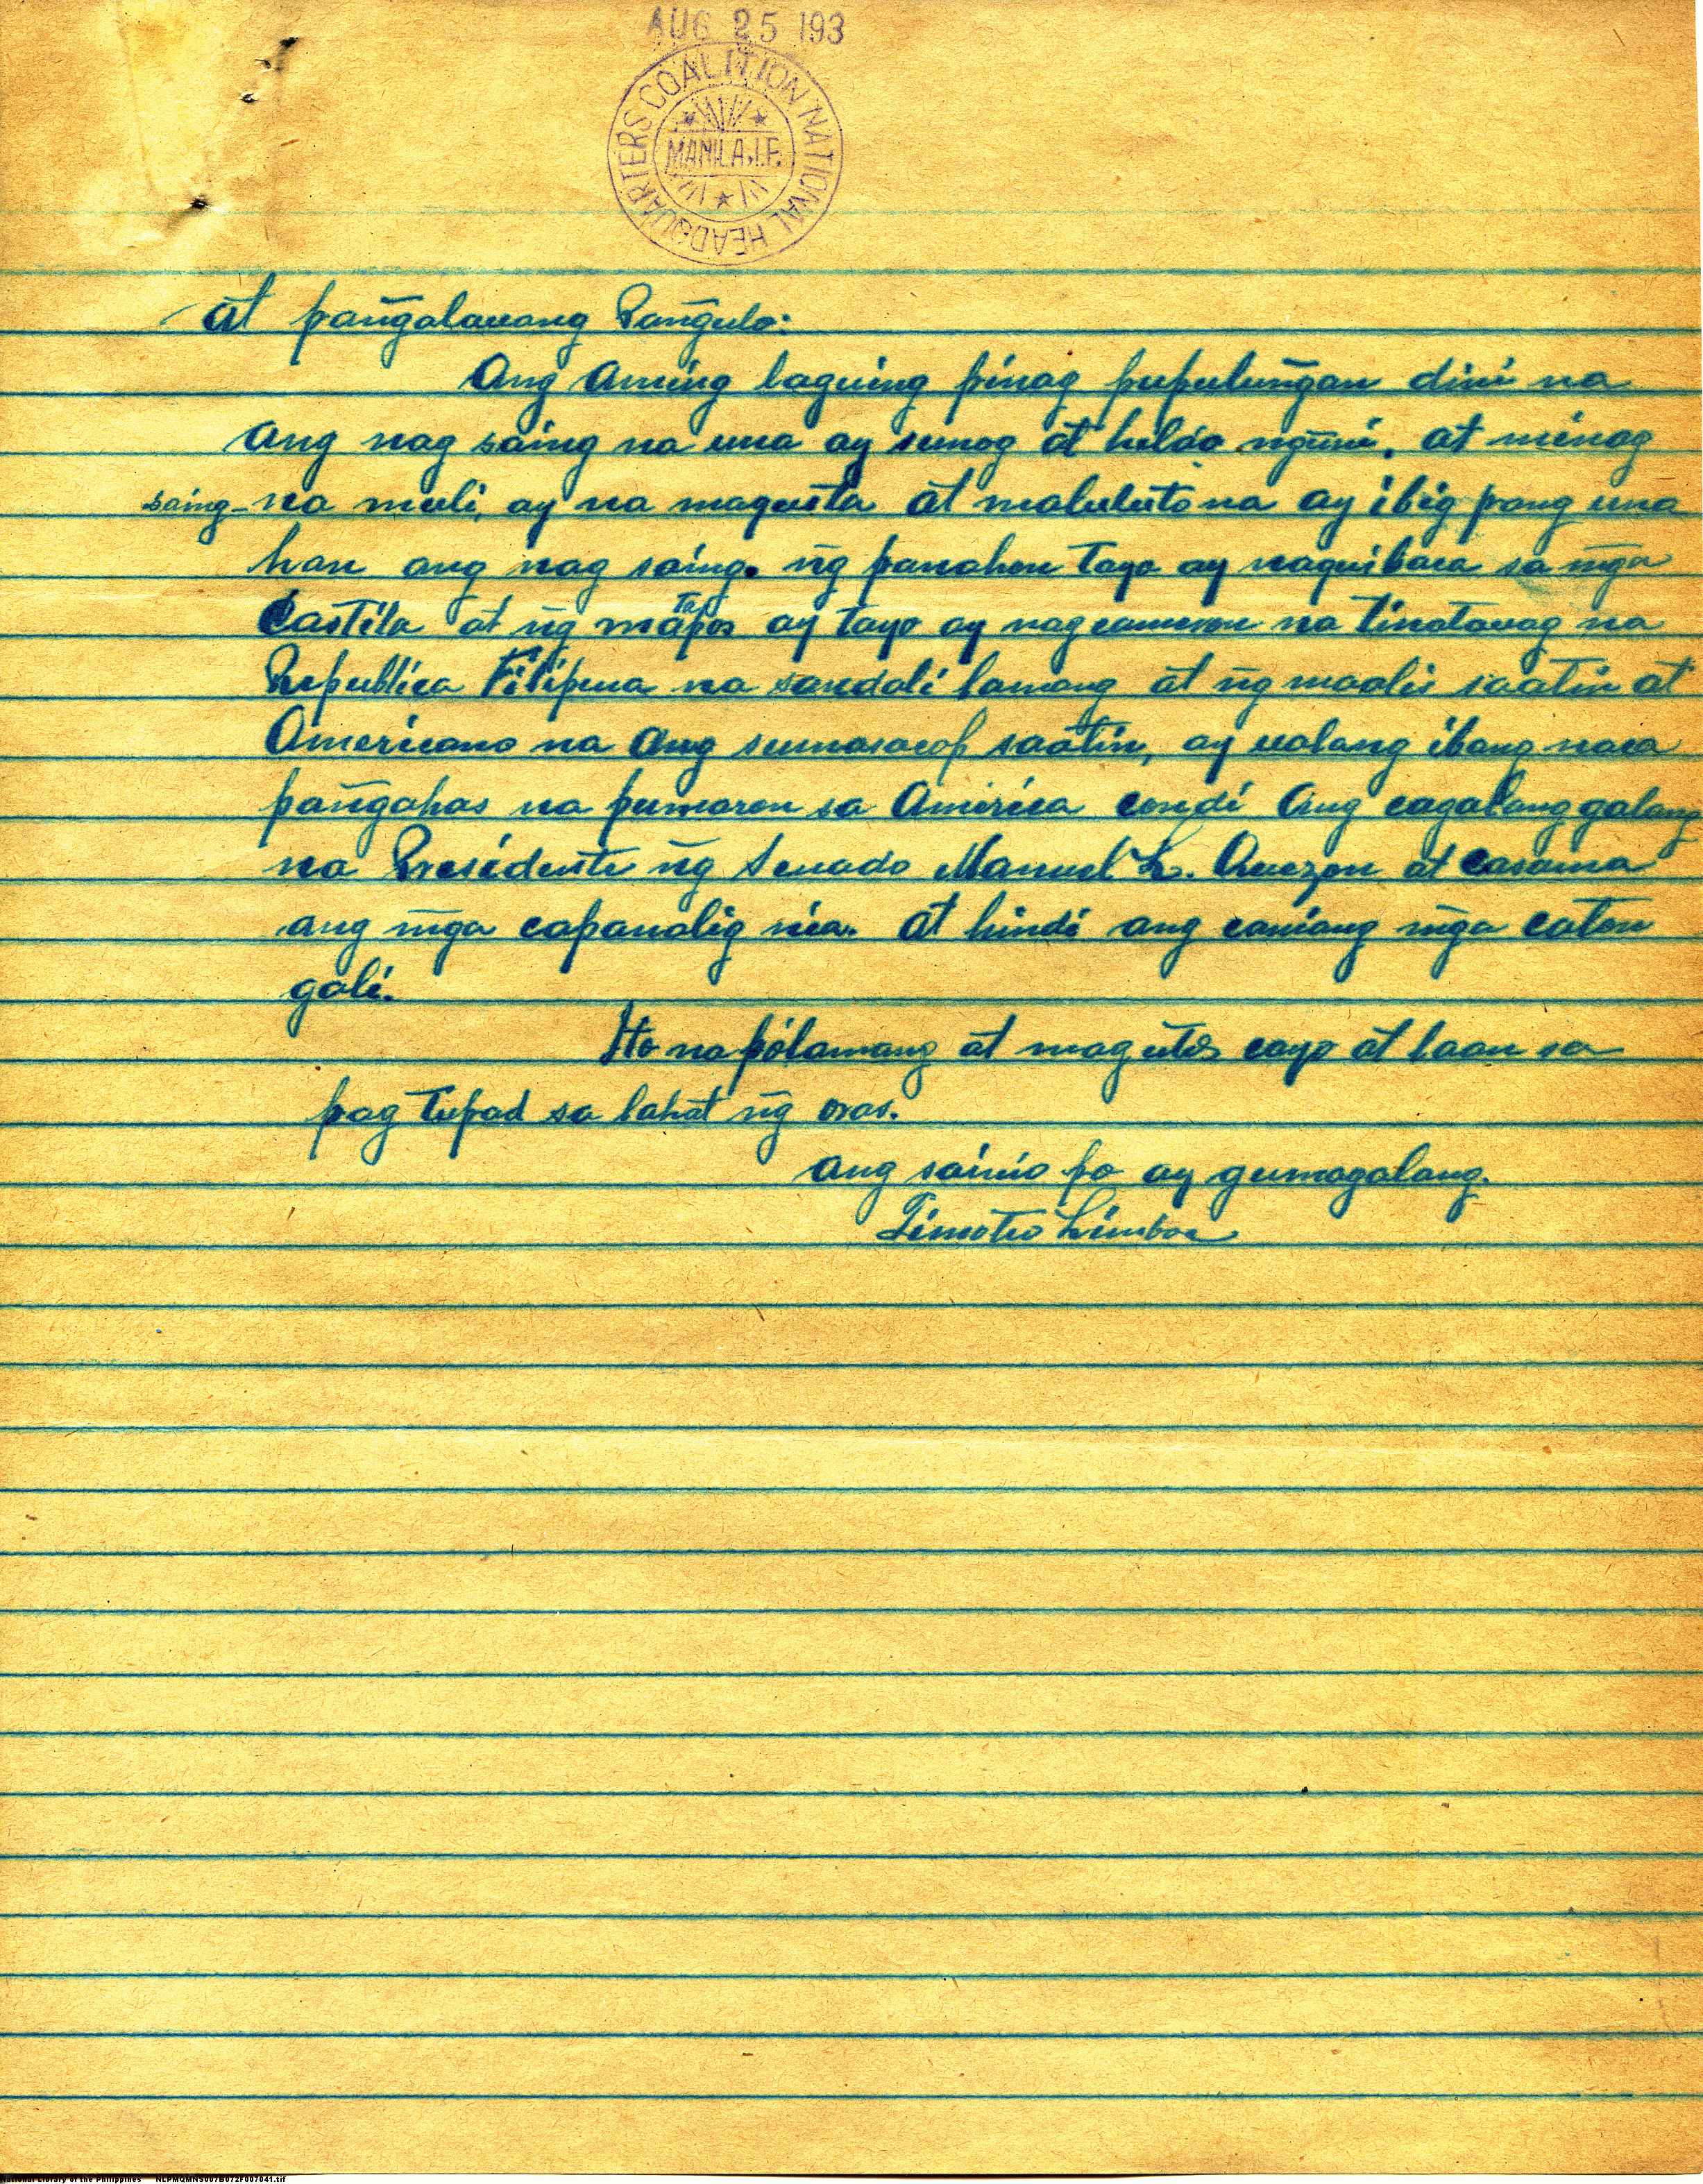 AUG 25 193
COALITION NATIONAL HEADQUARTERS
MANILA.I.F.
at pang̃alauang Pang̃ulo:
Ang Aming laguing pinag pupulung̃an dini na
ang nag saing na una ay sunog at hilao ng̃uni, at minag
saing- na muli, ay na maganta at malulutona ay ibig pang una
han ang nag saing. ñg panahon Tayo ay naquibaca sa m̃ga
Castila at ñg matapos ay tayo ay nagcameron na tinatauag na
Republica Filipina na sandali lamang at ñg maalis saatin at
Americano na ang sumasacop saatin, ay ualang ibang naca
pang̃ahas na pumaron sa America condi Ang cagalang galang
na Presidente ñg Senado Manuel L. Quezon at casama
ang m̃ga capanalig nia. at hindi ang caniang m̃ga caton
gali.
Ito na pólamang at mag utos cayo at laan sa
pag Tupad sa lahat ñg oras.
ang sainio po ay gumagalang.
Timoteo Limboc
National Library of the Philippines NLPMQMNS007B072F007041.tif